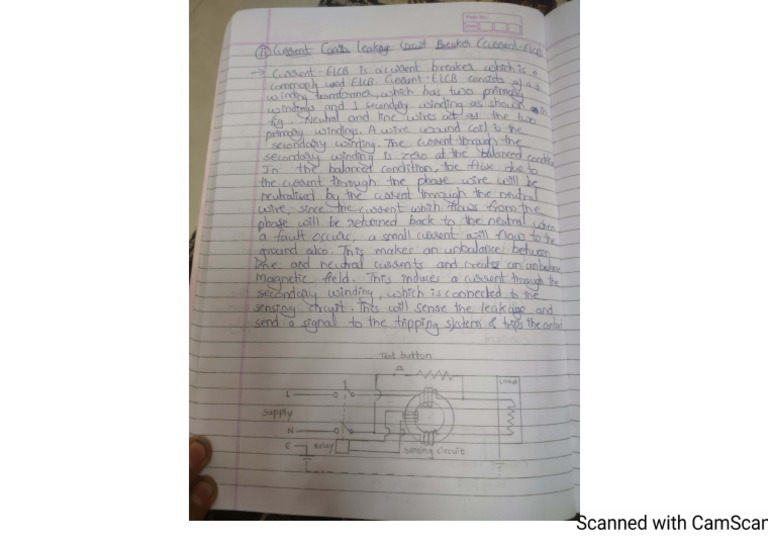 Page No.:
Date
Current Leakage Circuit Breaker (Current-ELCB
→ Current-ELCB is a current breaker which is a
commonly used ELCB. Current-ELCB consists of a 3
winding transformer, which has two primary
windings and 1 secondary winding as shown in
fig. Neutral and line wires act as the two
primary windings. A wire wound coil is the
secondary winding. The current through the
secondary winding is zero at the balanced condition
In the balanced condition, the flux due to
the current through the phase wire will be
neutralised by the current through the neutral
wire, since the current which flows from the
phase will be returned back to the neutral when
a fault occurs, a small current will flow to the
ground also. This makes an unbalance between
line and neutral currents and creates an unbalance
magnetic field. This induces a current through the
secondary winding, which is connected to the
sensing circuit. This will sense the leakage and
send a signal to the tripping system & trips the
Test button
Load
L
Supply
N
E
Relay
Sensing circuit
Scanned with CamScan